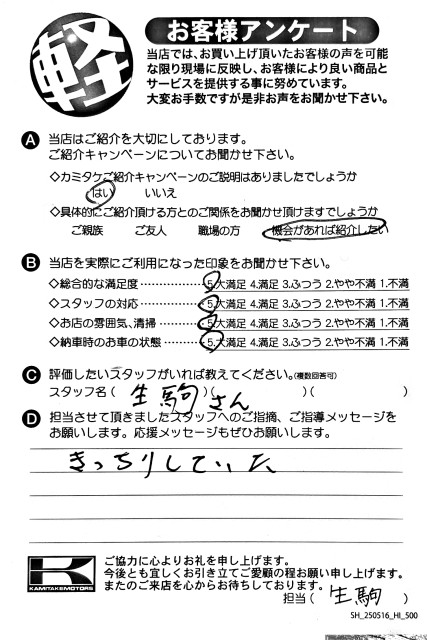 軽
お客様アンケート
当店では、お買い上げ頂いたお客様の声を可能
な限り現場に反映し、お客様により良い商品と
サービスを提供する事に努めています。
大変お手数ですが是非お声をお聞かせ下さい。
A 当店はご紹介を大切にしております。
ご紹介キャンペーンについてお聞かせ下さい。
◇カミタケご紹介キャンペーンのご説明はありましたでしょうか
はい いいえ
◇具体的にご紹介頂ける方とのご関係をお聞かせ頂けますでしょうか
ご親族 ご友人 職場の方 機会があれば紹介したい
B 当店を実際にご利用になった印象をお聞かせ下さい。
◇総合的な満足度……………5.大満足 4.満足 3.ふつう 2.やや不満 1.不満
◇スタッフの対応……………5.大満足 4.満足 3.ふつう 2.やや不満 1.不満
◇お店の雰囲気、清掃………5.大満足 4.満足 3.ふつう 2.やや不満 1.不満
◇納車時のお車の状態………5.大満足 4.満足 3.ふつう 2.やや不満 1.不満
C 評価したいスタッフがいれば教えてください。(複数回答可)
スタッフ名( 生駒さん )( )( )
D 担当させて頂きましたスタッフへのご指摘、ご指導メッセージを
お願いします。応援メッセージもぜひお願いします。
きっちりしていた
K
KAMITAKEMOTORS
ご協力に心よりお礼を申し上げます。
今後とも宜しくお引き立てご愛顧の程お願い申し上げます。
またのご来店を心からお待ちしております。
担当( 生駒 )
SH_250516_HI_500